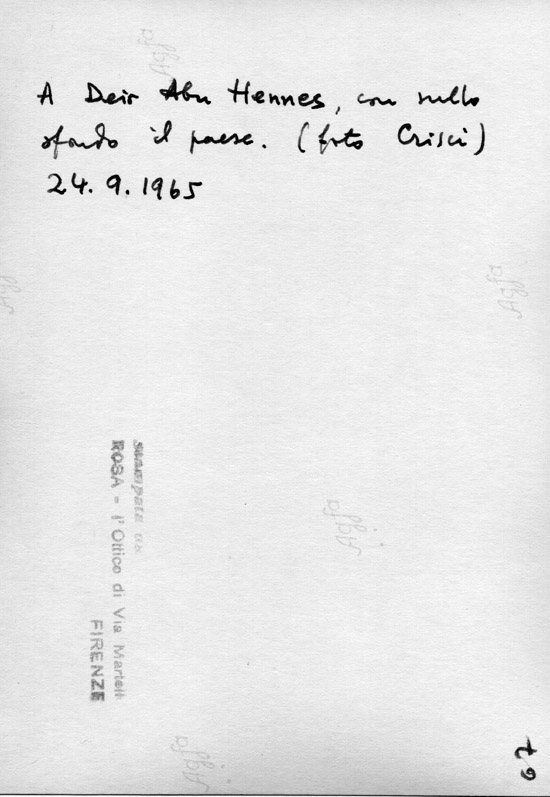 A Deir Abu Hennes, con sullo
sfondo il paese. (foto Crisci)
24.9.1965
Stampate da
ROSA - l'Ottico di Via Martelli
FIRENZE
Agfa
Agfa
Agfa
Agfa
Agfa